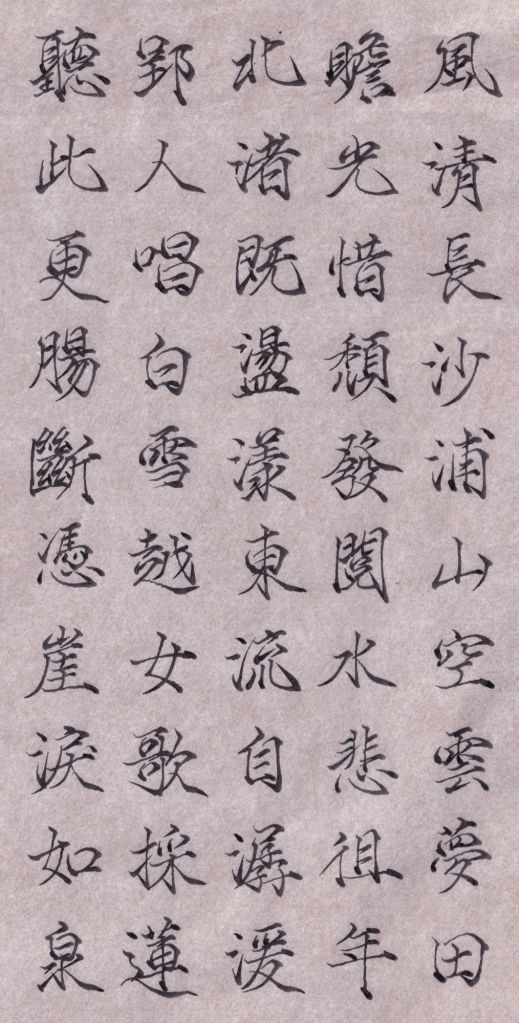 風清長沙浦山空雲夢田
瞻光惜頹發閱水悲徂年
北渚既盪漾東流自潺湲
郢人唱白雪越女歌採蓮
聽此更腸斷憑崖淚如泉